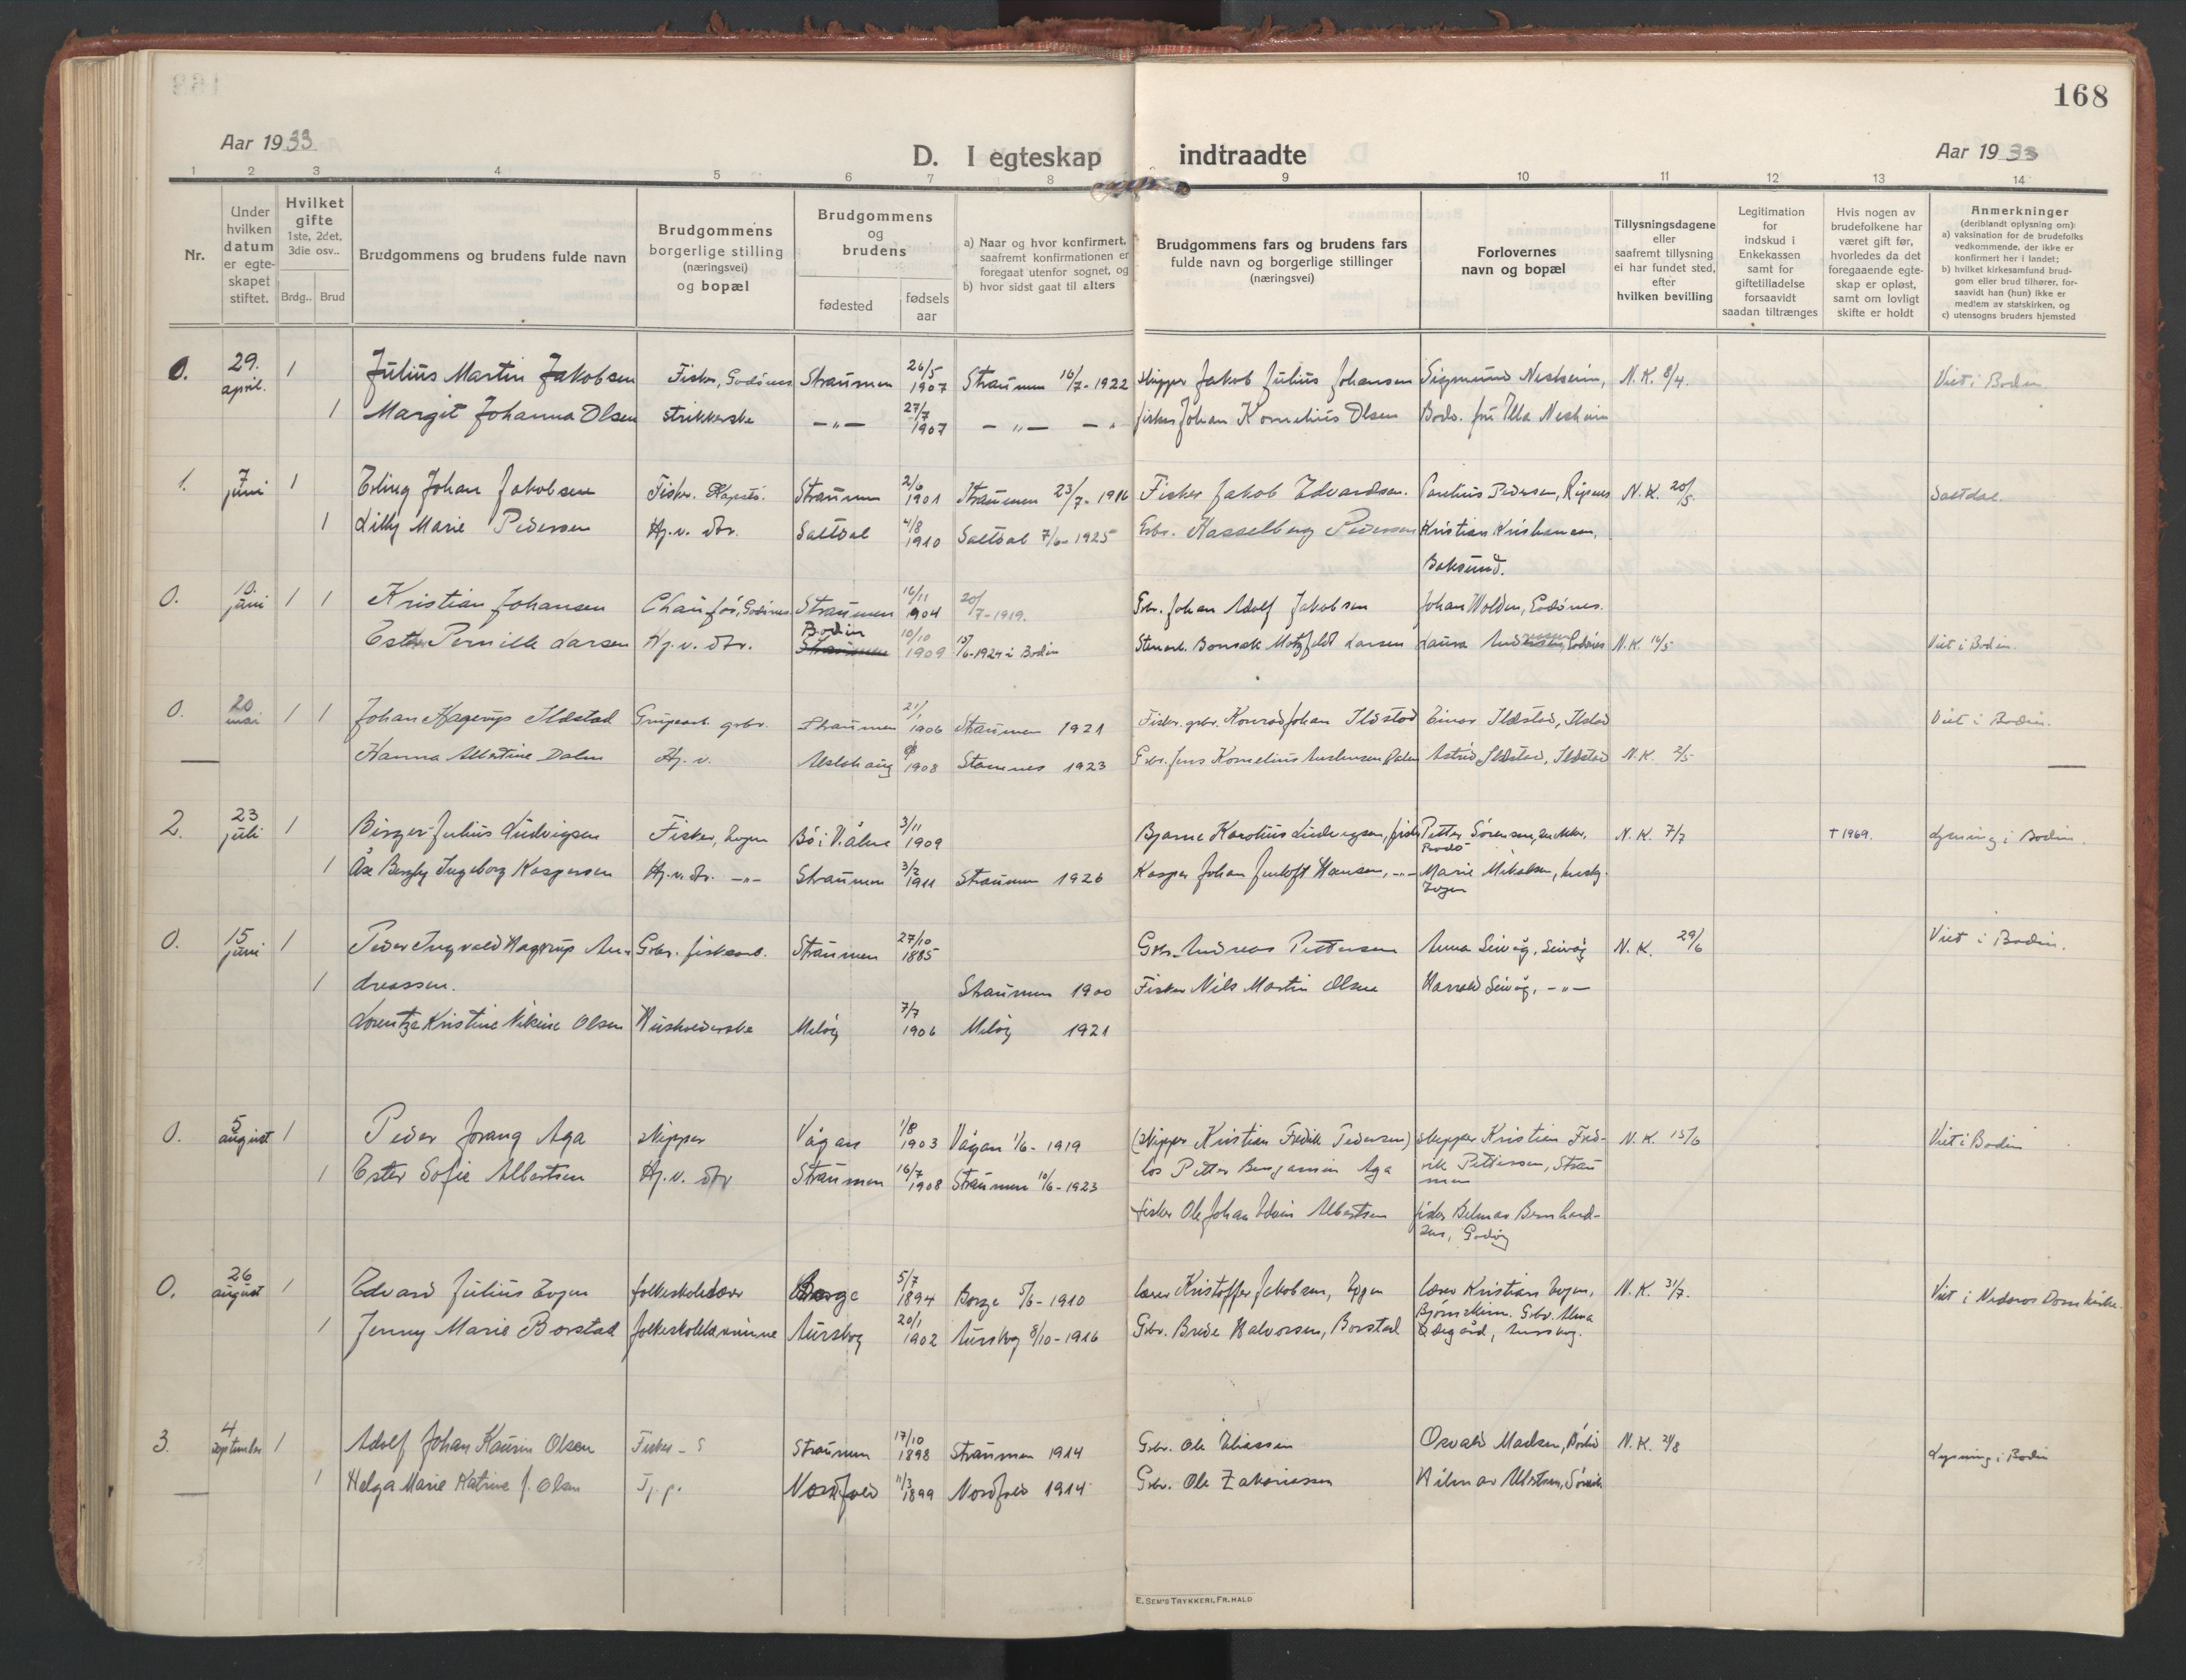 168
Aar 1933
D. I egteskap indtraadte
Aar 1933
1 2 3 4 5 6 7 8 9 10 11 12 13 14
Nr.
Under hvilken datum er egteskapet stiftet.
Hvilket gifte 1ste, 2det, 3die osv..
Brdg.. Brud
Brudgommens og brudens fulde navn
Brudgommens borgerlige stilling (næringsvei) og bopæl
Brudgommens og brudens
fødested
fødsels aar
a) Naar og hvor konfirmert, saafremt konfirmationen er foregaat utenfor sognet, og
b) hvor sidst gaat til alters
Brudgommens fars og brudens fars fulde navn og borgerlige stillinger (næringsvei)
Forlovernes navn og bopæl
Tillysningsdagene eller saafremt tillysning ei har fundet sted, efter hvilken bevilling
Legitimation for indskud i Enkekassen samt for giftetilladelse forsaavidt saadan tiltrænges
Hvis nogen av brudefolkene har været gift før, hvorledes da det foregaaende egteskap er opløst, samt om lovligt skifte er holdt
Anmerkninger (deriblandt oplysning om):
a) vaksination for de brudefolks vedkommende, der ikke er konfirmert her i landet;
b) hvilket kirkesamfund brudgom eller brud tilhører, forsaavidt han (hun) ikke er medlem av statskirken, og
c) utensogns bruders hjemsted
0. 29. april. 1 Julius Martin Jakobsen Fisker, Godönes Straumen 26/5 1907 Straumen 16/7-1922 skipper Jakob Julius Johansen Sigmund Nesheim, N.K. 8/4. Viet i Bodin.
1 Margit Johanna Olsen strikkerske -"- 27/7 1907 -"- -" fisker Johan Kornelius Olsen Bodø. fru Ella Nesheim
1. 7 juni 1 Erling Johan Jakobsen Fisker. Straumen 2/6 1901 Straumen 23/7-1916 Fisker Jakob Edvardsen. Pedersen, N.K. 20/5 Saltdal.
1 Lilly Marie Pedersen Hj.v. dtr. Saltdal 4/8 1910 Saltdal 7/6-1925 Gbr. Hasselberg Pedersen Kristian Kristiansen,
0. 10. juni 1 1 Kristian Johansen Chaufför, Godönes Straumen 16/11 1904 20/7-1919. Gbr. Johan Adolf Jakobsen Johan Wolden, Godönes.
Ester Pernille Larsen Hj.v. dtr. Bodin 10/10 1909 15/6-1924 i Bodin Stenarb. Bonsak Motzfeldt Larsen Laura Godönes N.K. 16/5 Viet i Bodin.
0. 20 mai 1 1 Johan Hagerup Ildstad Grubearb. gbr. Straumen 21/1 1906 Straumen 1921 Fisker. gbr. Konrad Johan Ildstad Einar Ildstad, Ildstad Viet i Bodin.
Hanna Albertine Dalen Hj.v. Alstahaug 1908 Stamnes 1923 Gbr. Jens Kornelius Dalen Astrid Ildstad, Ildstad N.K. 2/5
2. 23 juli 1 Birger Julius Ludvigsen Fisker, Eggen Bö i V.ålen 3/11 1909 Bjarne Karolius Ludvigsen, fisker Petter Sörensen, Bodö N.K. 7/7 † 1969. Lysning i Bodin.
1 Åse Bergly Ingeborg Kaspersen Hj.v. dtr. -"- Straumen 3/2 1911 Straumen 1926 Kasper Johan Hansen, -"- Marie Mikalsen, Eggen
0. 15 juni 1 Peder Ingvald Hagerup An- Gbr. fiskearb. Straumen 27/10 1885 Gbr. Andreas Pettersen Anna Seivåg, Seivåg N.K. 29/6 Viet i Bodin.
1 dreassen. Straumen 1900 Fisker Nils Martin Olsen Harald Seivåg, -"-
Lorentze Kristine Nikine Olsen Husholderske Melöy 7/7 1906 Melöy 1921
0. 5 august 1 Peder Aga skipper Vågan 1/8 1903 Vågan 1/6-1919 (skipper Kristian Fredrik Pedersen) skipper Kristian Fred- N.K. 15/6 Viet i Bodin
1 Ester Sofie Albertsen Hj.v. dtr Straumen 16/7 1908 Straumen 10/6-1923 los Petter Benjamin Aga rik Pettersen, Straumen
fisker Ole Johan Edvin Albertsen fisker Bernhardsen, Godöy
0. 26 august 1 Edvard Julius Eggen folkeskolelærer Borge 5/7 1894 Borge 5/6-1910 lærer Kristoffer Jakobsen, Eggen lærer Kristian Eggen, N.K. 31/7. Viet i Nidaros Domkirke.
1 Jenny Marie Borstad folkeskolelærerinne Aurskog 20/1 1902 Aurskog 8/10-1916 Gbr. Brede Halvorsen, Borstad Gbr. Alma Ödegård, Aurskog.
3. 4 september 1 Adolf Johan Kaurin Olsen Fisker Straumen 17/10 1898 Straumen 1914 Gbr. Ole Eliassen Osvald Madsen, N.K. 21/8 Lysning i Bodin
1 Helga Marie Katrine J. Olsen Tj.p. Nordfold 11/3 1899 Nordfold 1914 Gbr. Ole Zakariassen Hilmar Albertsen,
E. SEM'S TRYKKERI, FR. HALD